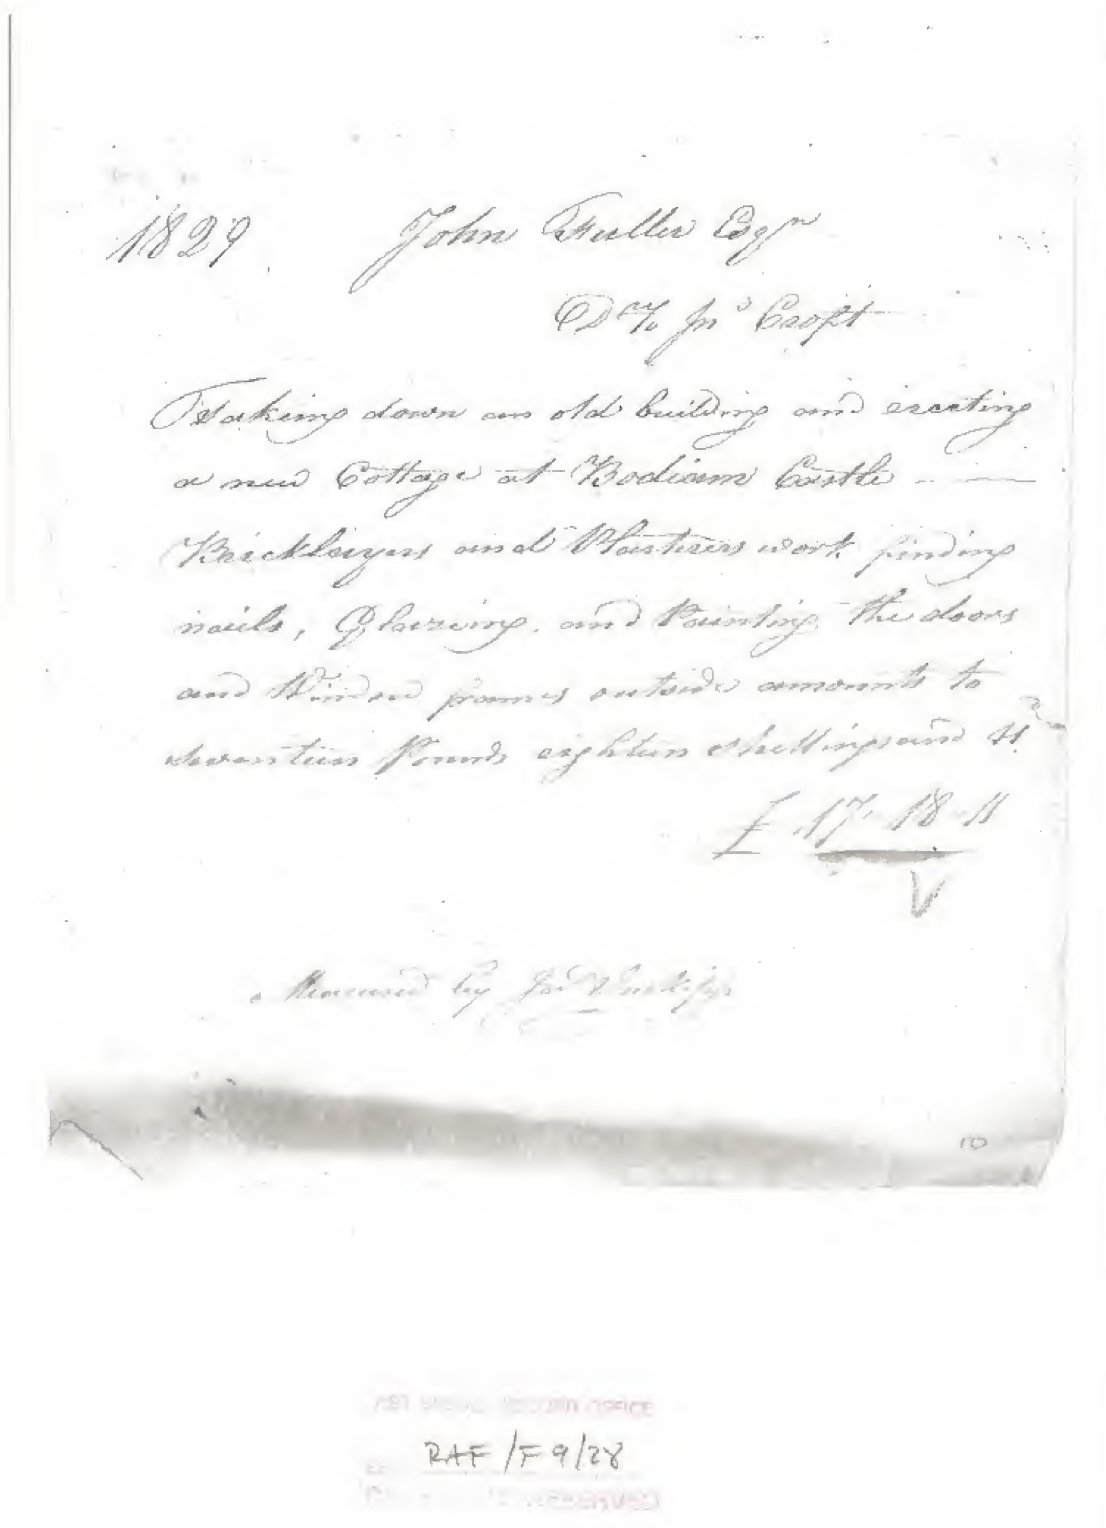 1829 John Fuller Esqr
Dr to Jno Croft
Taking down an old building and erecting
a new Cottage at Bodiam Castle
Bricklayers and Plasterers work finding
nails, Glazing, and Painting the doors
and Window frames outside amounts to
seventeen Pounds eighteen shillings and 11d
£ 17 - 18 - 11
Measured by
10
RECORD OFFICE
RAF/F 9/28